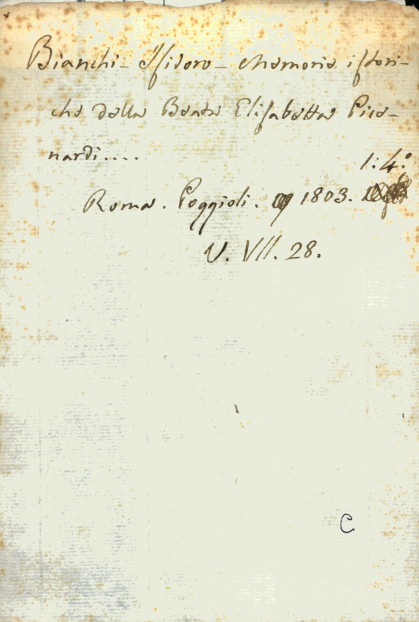 Bianchi - Isidoro - Memorie istori-
che della Beata Elisabetta Pice-
nardi....
1:4.°
Roma. Poggioli. 1803.
V. VII. 28.
C